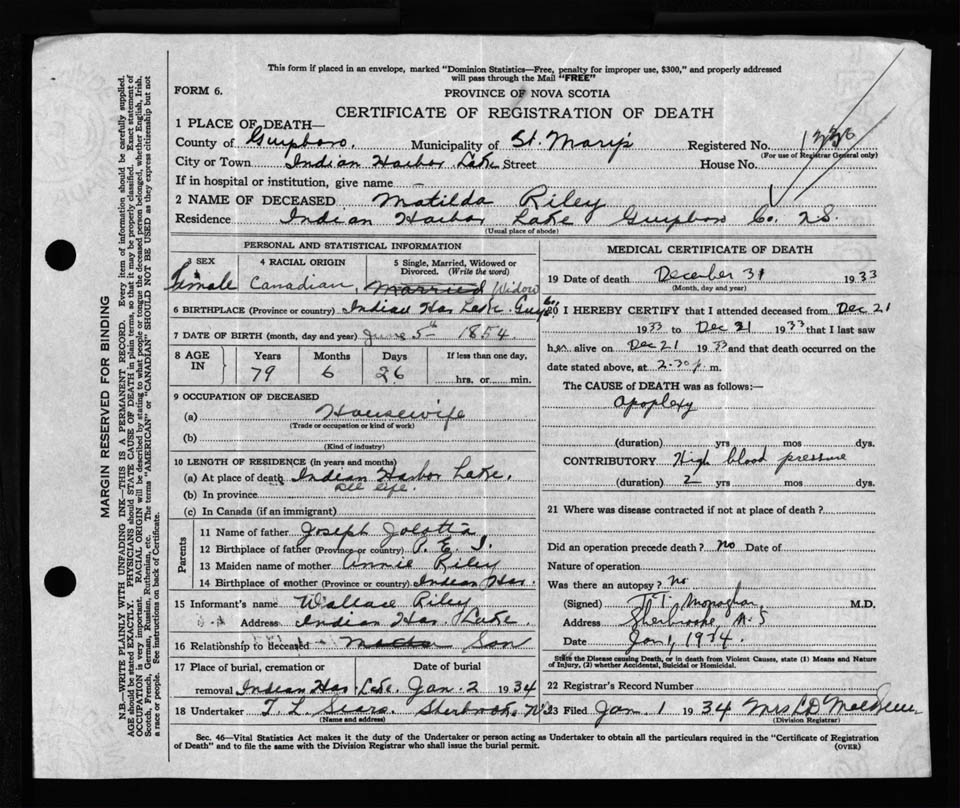 This form if placed in an envelope, marked "Dominion Statistics—Free, penalty for improper use, $300," and properly addressed
will pass through the Mail "FREE"
FORM 6.
PROVINCE OF NOVA SCOTIA
CERTIFICATE OF REGISTRATION OF DEATH
1 PLACE OF DEATH—
County of Guysboro. Municipality of St. Mary's Registered No.
(For use of Registrar General only)
City or Town Indian Harbor Lake Street House No.
If in hospital or institution, give name —
2 NAME OF DECEASED Matilda Riley
Residence Indian Harbor Lake Guysboro Co. N.S.
(Usual place of abode)
PERSONAL AND STATISTICAL INFORMATION
3 SEX 4 RACIAL ORIGIN 5 Single, Married, Widowed or Divorced. (Write the word)
Female Canadian, Married Widow
6 BIRTHPLACE (Province or country) Indian Har Lake. Guys Co.
7 DATE OF BIRTH (month, day and year) June 5th 1854.
8 AGE IN Years Months Days If less than one day,
79 6 26 hrs. or min.
9 OCCUPATION OF DECEASED
(a) Housewife
(Trade or occupation or kind of work)
(b)
(Kind of industry)
10 LENGTH OF RESIDENCE (in years and months)
(a) At place of death Indian Harbor Lake.
(b) In province All life.
(c) In Canada (if an immigrant)
Parents
11 Name of father Joseph
12 Birthplace of father (Province or country) P. E. I.
13 Maiden name of mother Annie Riley
14 Birthplace of mother (Province or country) Indian Har.
15 Informant's name Wallace Riley
Address Indian Har. Lake.
16 Relationship to deceased Son
17 Place of burial, cremation or removal Indian Har Lake. Date of burial Jan. 2 1934
18 Undertaker T. L. Sears. Sherbrooke N.S.
(Name and address)
MEDICAL CERTIFICATE OF DEATH
19 Date of death December 31 1933
(Month, day and year)
20 I HEREBY CERTIFY that I attended deceased from Dec 21
1933 to Dec 21 1933 that I last saw
her alive on Dec 21 1933 and that death occurred on the
date stated above, at 2.30 p. m.
The CAUSE of DEATH was as follows:—
Apoplexy
(duration) yrs mos dys.
CONTRIBUTORY High blood pressure
(duration) 2 yrs mos dys.
21 Where was disease contracted if not at place of death?
Did an operation precede death? No Date of
Nature of operation
Was there an autopsy? No
(Signed) Monaghan M.D.
Address Sherbrooke, N.S
Date Jan 1, 1934.
State the Disease causing Death, or in death from Violent Causes, state (1) Means and Nature
of Injury, (2) whether Accidental, Suicidal or Homicidal.
22 Registrar's Record Number
23 Filed Jan. 1 1934 Mrs
(Division Registrar)
Sec. 46—Vital Statistics Act makes it the duty of the Undertaker or person acting as Undertaker to obtain all the particulars required in the "Certificate of Registration
of Death" and to file the same with the Division Registrar who shall issue the burial permit.
(OVER)
MARGIN RESERVED FOR BINDING
N.B.—WRITE PLAINLY WITH UNFADING INK—THIS IS A PERMANENT RECORD. Every item of information should be carefully supplied.
AGE should be stated EXACTLY. PHYSICIANS should STATE CAUSE OF DEATH in plain terms, so that it may be properly classified. Exact statement of
OCCUPATION is very important. RACIAL ORIGIN will be described by stating to what people or tongue the deceased person belonged, whether English, Irish,
Scotch, French, German, Russian, Ruthenian, etc. The terms "AMERICAN" or "CANADIAN" SHOULD NOT BE USED as they express citizenship but not
a race or people. See instructions on back of Certificate.